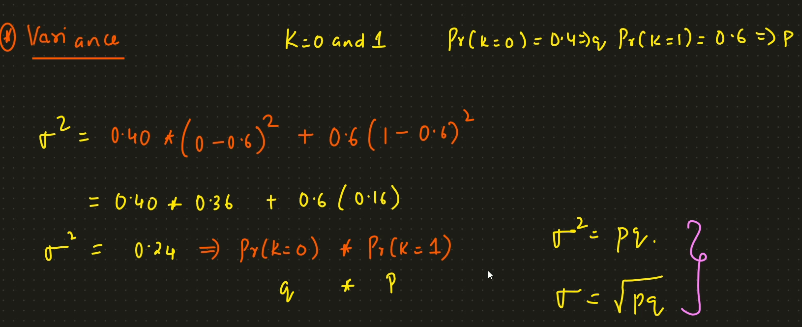 * Variance K=0 and 1 Pr(K=0) = 0.4 ⇒ q Pr(K=1) = 0.6 ⇒ P
σ² = 0.40 * (0 - 0.6)² + 0.6 (1 - 0.6)²
= 0.40 * 0.36 + 0.6 (0.16)
σ² = 0.24 ⇒ Pr(K=0) * Pr(K=1)
q * P
σ² = pq.
σ = √pq